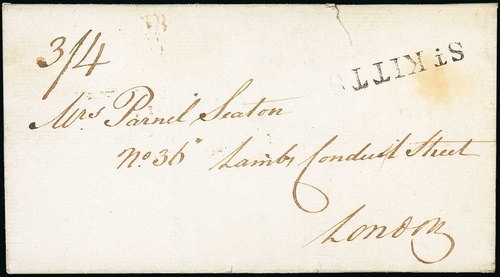 3/4
ST KITTS
Mrs Parnel Seaton
No 36 Lambs Conduit Street
London